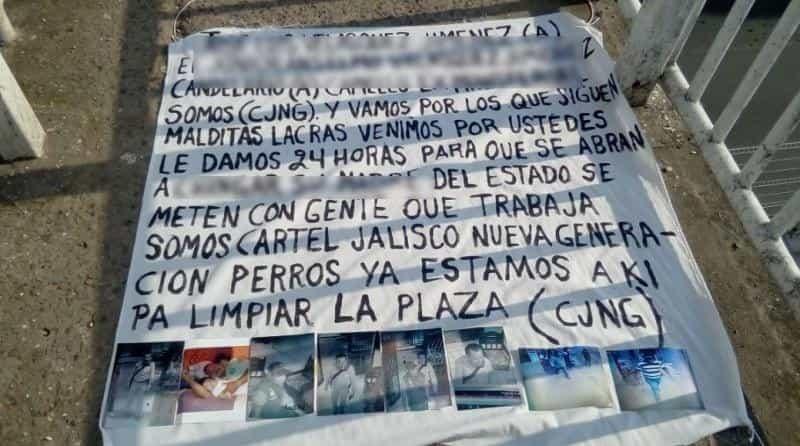 JIMENEZ (A)
CANDELARIO (A)
SOMOS (CJNG). Y VAMOS POR LOS QUE SIGUEN
MALDITAS LACRAS VENIMOS POR USTEDES
LE DAMOS 24 HORAS PARA QUE SE ABRAN
A DEL ESTADO SE
METEN CON GENTE QUE TRABAJA
SOMOS CARTEL JALISCO NUEVA GENERA-
CION PERROS YA ESTAMOS A KI
PA LIMPIAR LA PLAZA (CJNG)